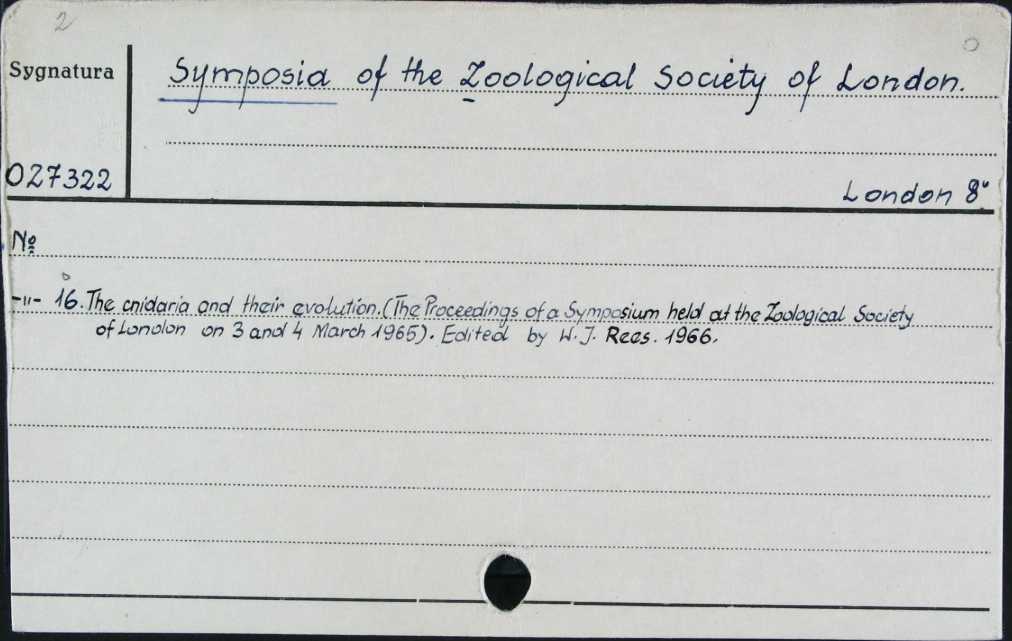 2
Sygnatura
Symposia of the Zoological Society of London.
027322
London 8°
№
-"- 16. The cnidaria and their evolution. (The Proceedings of a Symposium held at the Zoological Society
of London on 3 and 4 March 1965). Edited by W. J. Rees. 1966.